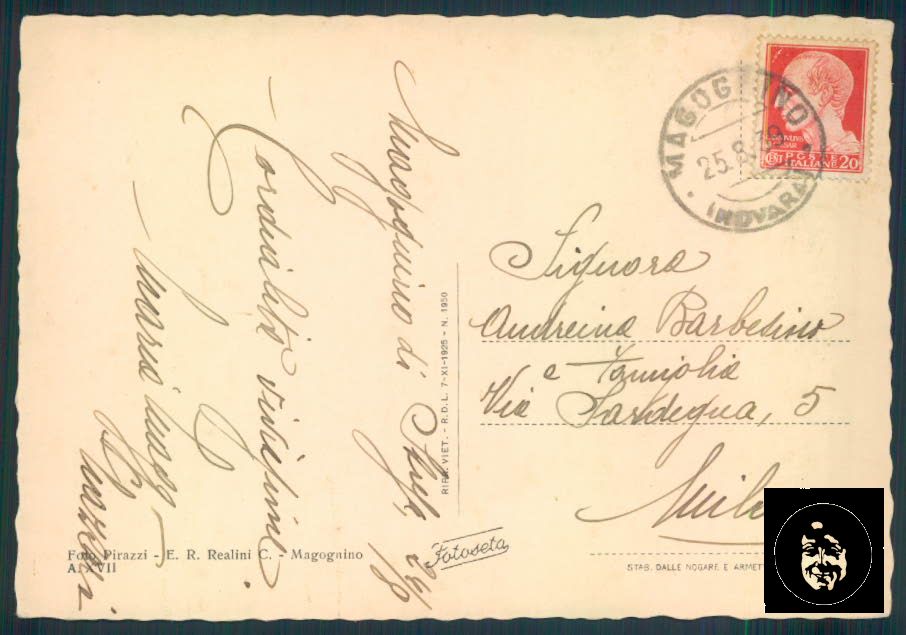 Magognino di Stresa 24/8
Cordialità vivissime
MAGOGNINO
25.8.39
(NOVARA)
CENT POSTE ITALIANE 20
Signora
Andreina Barbesino
e Famiglia
Via Sardegna, 5
RIPR. VIET. - R.D.L. 7-XI-1925 - N. 1950
Foto Pirazzi - E. R. Realini C. - Magognino
A. XVII
Fotoseta
STAB. DALLE NOGARE E ARMETT